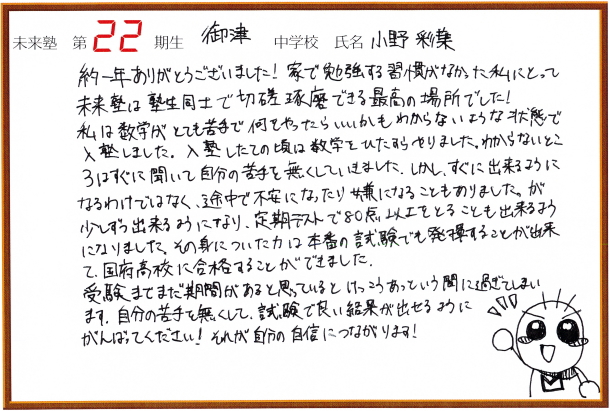 未来塾 第22期生 御津 中学校 氏名 小野 彩葉
約一年ありがとうございました!家で勉強する習慣がなかった私にとって
未来塾は塾生同士で切磋琢磨できる最高の場所でした!
私は数学がとても苦手で何をやったらいいかもわからないような状態で
入塾しました。入塾したての頃は数学をひたすらやりました。わからないとこ
ろはすぐに聞いて自分の苦手を無くしていきました。しかし、すぐに出来るように
なるわけではなく、途中で不安になったり嫌になることもありました。が
少しずつ出来るようになり、定期テストで80点以上をとることも出来るよう
になりました。その身についた力は本番の試験でも発揮することが出来
て、国府高校に合格することができました。
受験までまだ期間があると思っているとけっこうあっという間に過ぎてしまい
ます。自分の苦手を無くして、試験で良い結果が出せるように
がんばてください!それが自分の自信につながります!